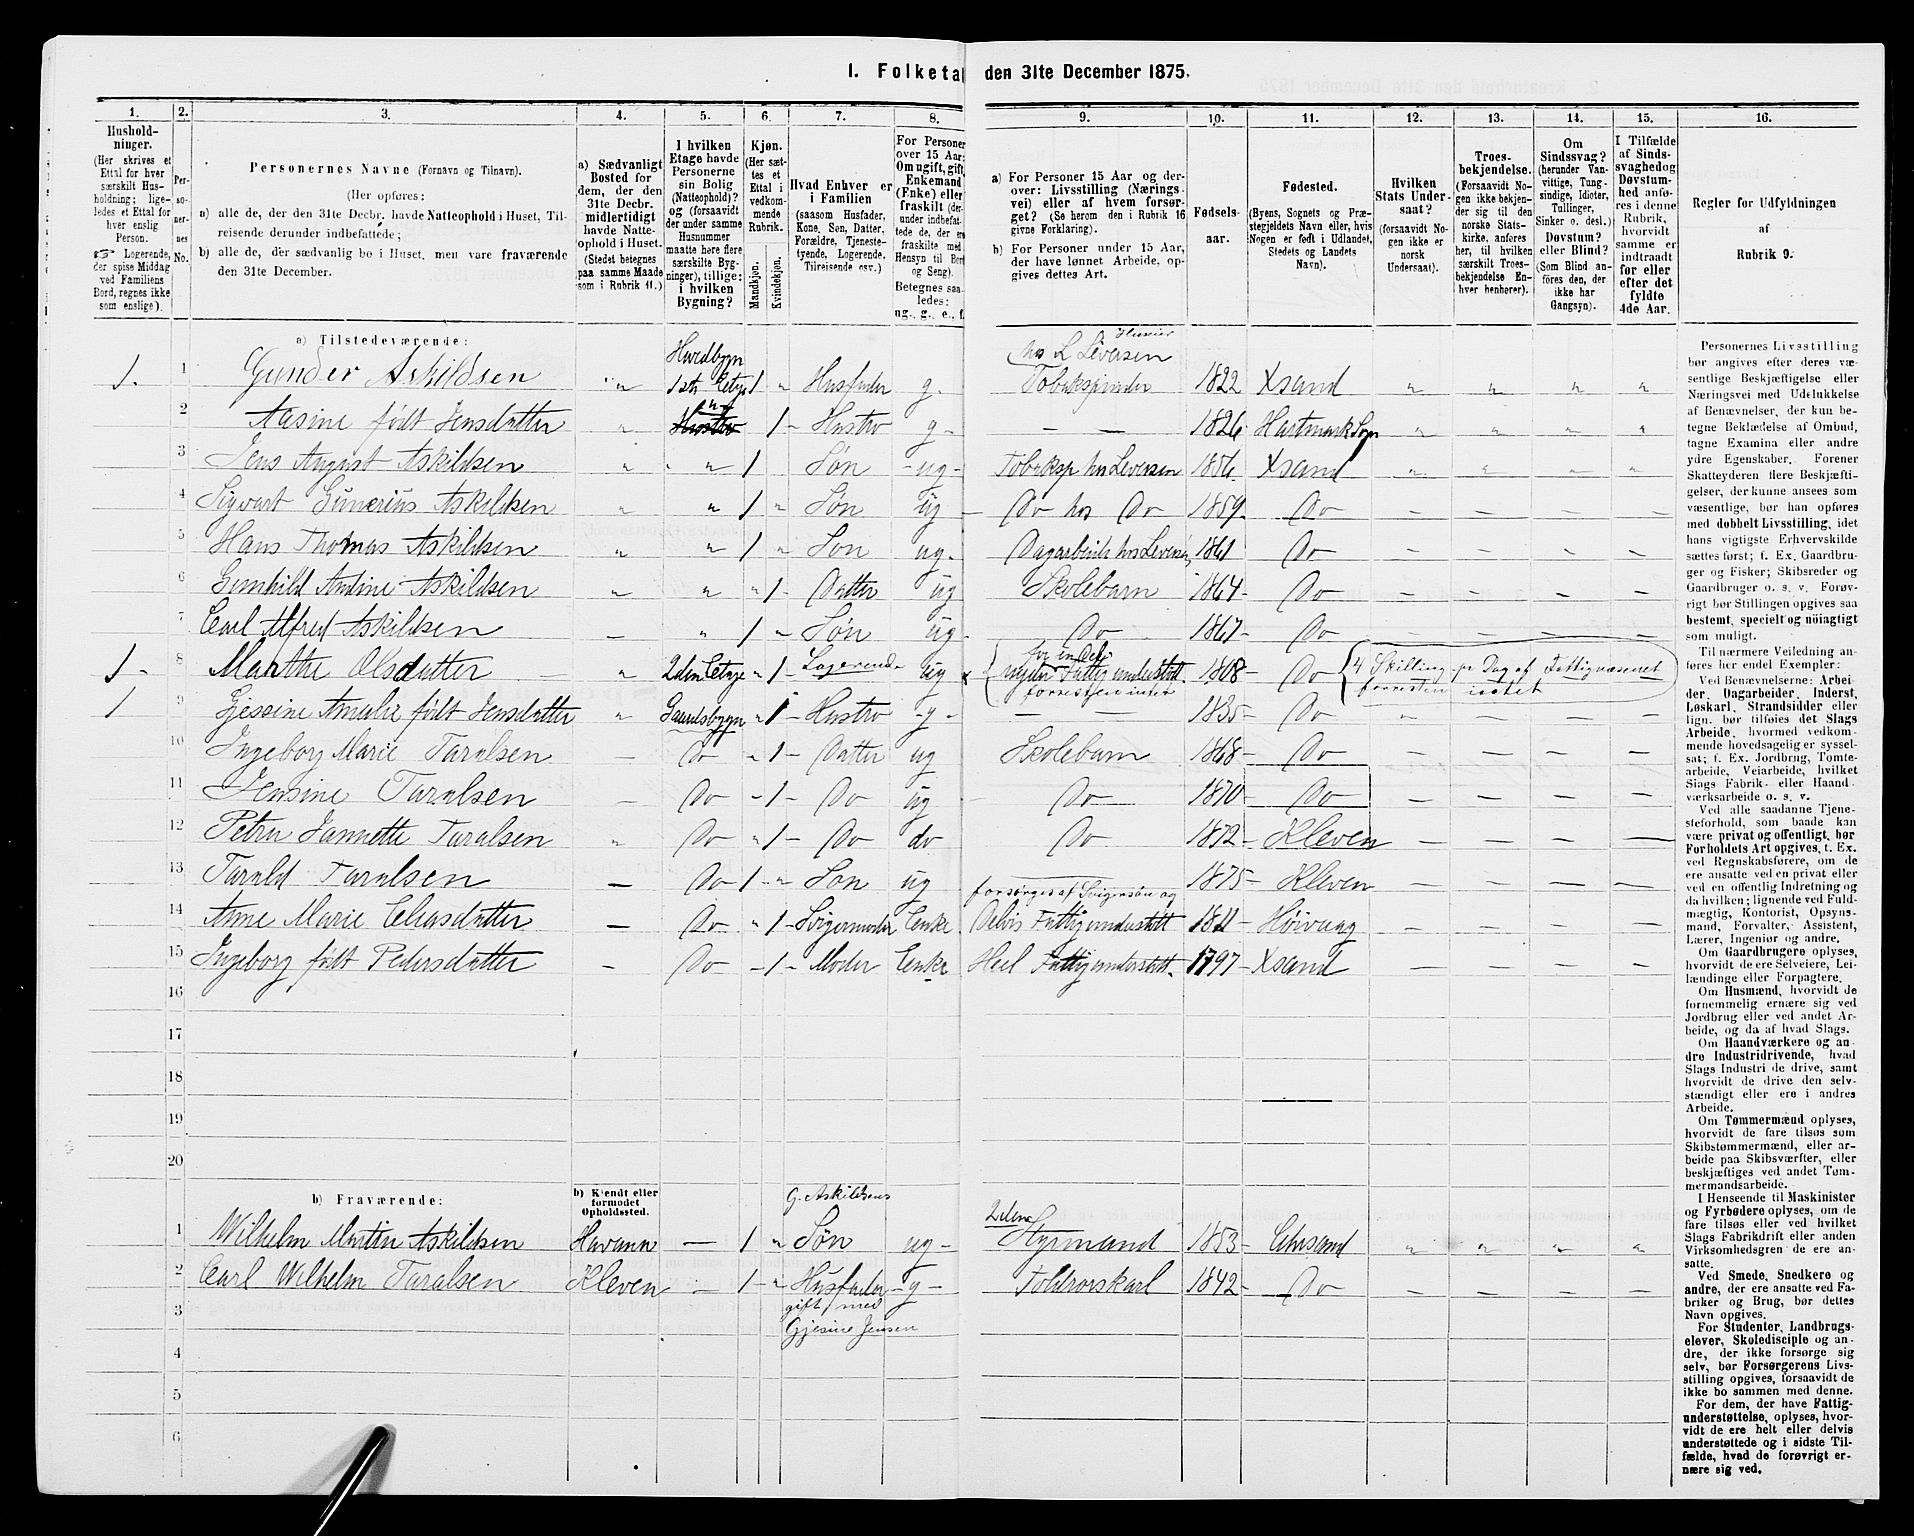 I. Folketal den 31te December 1875.
1. 2. 3. 4. 5. 6. 7. 8. 9. 10. 11. 12. 13. 14. 15. 16.
Hushold-
ninger.
(Her skrives et
Ettal for hver
særskilt Hus-
holdning; lige-
ledes et Ettal for
hver enslig
Person.
☞ Logerende,
der spise Middag
ved Familiens
Bord, regnes ikke
som enslige).
Per-
so-
ner-
nes
No.
Personernes Navne (Fornavn og Tilnavn).
(Her opføres:
a) alle de, der den 31te Decbr. havde Natteophold i Huset, Til-
reisende derunder indbefattede;
b) alle de, der sædvanlig bo i Huset, men vare fraværende
den 31te December.
a) Sædvanligt
Bosted for
dem, der den
31te Decbr.
midlertidigt
havde Natte-
ophold i Huset.
(Stedet betegnes
paa samme Maade
som i Rubrik 11.)
I hvilken
Etage havde
Personerne
sin Bolig
(Natteophold)?
og (forsaavidt
der under samme
Husnummer
maatte høre flere
særskilte Byg-
ninger), tillige:
i hvilken
Bygning?
Kjøn.
(Her sæt-
tes et
Ettal i
vedkom-
mende
Rubrik.
Mandkjøn.
Kvindekjøn.
Hvad Enhver er
i Familien
(saasom Husfader,
Kone, Søn, Datter,
Forældre, Tjeneste-
tyende, Logerende,
Tilreisende osv.)
For Personer
over 15 Aar:
Om ugift, gift,
Enkemand
(Enke) eller
fraskilt (der-
under indbefat-
tede de, der ere
fraskilte med
Hensyn til Bord
og Seng).
Betegnes saa-
ledes:
ug., g., e., f.
a) For Personer 15 Aar og der-
over: Livsstilling (Nærings-
vei) eller af hvem forsør-
get? (Se herom den i Rubrik 16
givne Forklaring).
b) For Personer under 15 Aar,
der have lønnet Arbeide, op-
gives dettes Art.
Fødsels-
aar.
Fødested.
(Byens, Sognets og Præ-
stegjeldets Navn eller, hvis
Nogen er født i Udlandet,
Stedets og Landets
Navn).
Hvilken
Stats Under-
saat?
(forsaavidt No-
gen ikke er
norsk
Undersaat).
Troes-
bekjendelse.
(Forsaavidt No-
gen ikke bekjen-
der sig til den
norske Stats-
kirke, anføres
her, til hvilken
særskilt Troes-
bekjendelse En-
hver henhører).
Om
Sindssvag?
(herunder Van-
vittige, Tung-
sindige, Idioter,
Tullinger,
Sinker o. desl.)
Døvstum?
eller Blind?
(Som Blind an-
føres den, der
ikke har
Gangsyn).
I Tilfælde
af Sinds-
svaghed og
Døvstum-
hed anfø-
res i denne
Rubrik,
hvorvidt
samme er
indtraadt
før eller
efter det
fyldte
4de Aar.
Regler for Udfyldningen
af
Rubrik 9.
a) Tilstedeværende:
1. 1 Gunder Askildsen " Hovedbygn 1ste Etage 1 " Husfader g. hos L Leversen Tobakspinder 1822 Xsand " " " "
2 Aasine født Jensdatter " " 1 - Hustro g - — — 1826 Hartmark Sogn " " " "
3 Jens August Askildsen " " 1 Søn - ug - Tobaksp hos Leversen 1856 Xsand " " — "
4 Sigvart Gunerius Askildsen " " 1 " Søn ug — Do hos Do 1859 Do
5 Hans Thomas Askildsen " " 1 " Søn ug. Dagarbeid hos Leversen 1861 Do
6 Gunhild Andine Askildsen " " " 1 - Datter ug Skolebarn 1864 - Do
7 Carl Alfred Askildsen — " 1 " Søn ug - Do 1867 - Do
1 - 8 Marthe Olsdatter " 2den Etage " 1 - Logerende ug x for en Del nyder Fattigunderstøtt. forresten intet 1808 - Do 4 Skilling pr Dag af Fattigvæsenet forresten intet
1 9 Gjessine Amalie født Jensdatter " Gaardsbygn " 1 - Hustro - g - — — 1835 - Do — — — —
10 Ingeborg Marie Taralsen — Do " 1 - Datter ug Skolebarn 1868 - Do
11 Jensine Taralsen — Do - 1 - Do ug - Do 1870 - Do — — — —
12 Petra Jannette Taralsen " Do " 1 - Do do Do 1872 - Kleven — — — —
13 Tarald Taralsen — Do 1 - " Søn ug 1875 - Kleven — — — —
14 Anne Marie Eliasdatter — Do " 1 - Svigermoder Enke forsørges af Svigersøn og Delvis Fattigunderstøtt 1811 - Høivaag — — — —
15 Ingeborg født Pedersdatter - Do - 1 - Moder Enke Heel Fattigunderstøtt. 1797 - Xsand — — — —
16
17
18
19
20
b) Fraværende:
b) Kjendt eller
formodet
Opholdssted.
1 Wilhelm Martin Askildsen Havanna — 1 " G. Askildsens Søn ug - 2den Styrmand 1853 - Chrsand " " " "
2 Carl Wilhelm Taralsen Kleven — 1 - " Husfader - g - Toldrorskarl 1842 - Do
3 gift med
Gjesine Jensen
4
5
6
Personernes Livsstilling
bør angives efter deres væ-
sentlige Beskjæftigelse eller
Næringsvei med Udelukkelse
af Benævnelser, der kun be-
tegne Beklædelse af Ombud,
tagne Examina eller andre
ydre Egenskaber. Forener
Skatteyderen flere Beskjæfti-
gelser, der kunne ansees som
væsentlige, bør han opføres
med dobbelt Livsstilling, idet
hans vigtigste Erhvervskilde
sættes først; f. Ex. Gaardbru-
ger og Fisker; Skibsreder og
Gaardbruger o. s. v. Forøv-
rigt bør Stillingen opgives saa
bestemt, specielt og nöiagtigt
som muligt.
Til nærmere Veiledning an-
føres her endel Exempler:
Ved Benævnelserne: Arbei-
der, Dagarbeider, Inderst,
Løskarl, Strandsidder eller
lign. bør tilføies det Slags
Arbeide, hvormed vedkom-
mende hovedsagelig er syssel-
sat; f. Ex. Jordbrug, Tomte-
arbeide, Veiarbeide, hvilket
Slags Fabrik- eller Haand-
værksarbeide o. s. v.
Ved alle saadanne Tjene-
steforhold, som baade kan
være privat og offentligt, bør
Forholdets Art opgives, f. Ex.
ved Regnskabsførere, om de
ere ansatte ved en privat eller
ved en offentlig Indretning og
da hvilken; lignende ved Fuld-
mægtig, Kontorist, Opsyns-
mand, Forvalter, Assistent,
Lærer, Ingeniør og andre.
Om Gaardbrugere oplyses,
hvorvidt de ere Selveiere, Lei-
lændinge eller Forpagtere.
Om Husmænd, hvorvidt de
fornemmelig ernære sig ved
Jordbrug eller ved andet Ar-
beide, og da af hvad Slags.
Om Haandværkere og an-
dre Industridrivende, hvad
Slags Industri de drive, samt
hvorvidt de drive den selv-
stændigt eller ere i andres
Arbeide.
Om Tømmermænd oplyses,
hvorvidt de fare tilsøs som
Skibstømmermænd, eller ar-
beide paa Skibsværfter, eller
beskjæftiges ved andet Tøm-
mermandsarbeide.
I Henseende til Maskinister
og Fyrbødere oplyses, om de
fare tilsøs eller ved hvilket
Slags Fabrikdrift eller anden
Virksomhedsgren de ere an-
satte.
Ved Smede, Snedkere og
andre, der ere ansatte ved Fa-
briker og Brug, bør dettes
Navn opgives.
For Studenter, Landbrugs-
elever, Skoledisciple og an-
dre, der ikke forsørge sig
selv, bør Forsørgerens Livs-
stilling opgives, forsaavidt de
ikke bo sammen med denne.
For dem, der have Fattig-
understøttelse, oplyses, hvor-
vidt de ere helt eller delvis
understøttede og i sidste Til-
fælde, hvad de forøvrigt er-
nære sig ved.